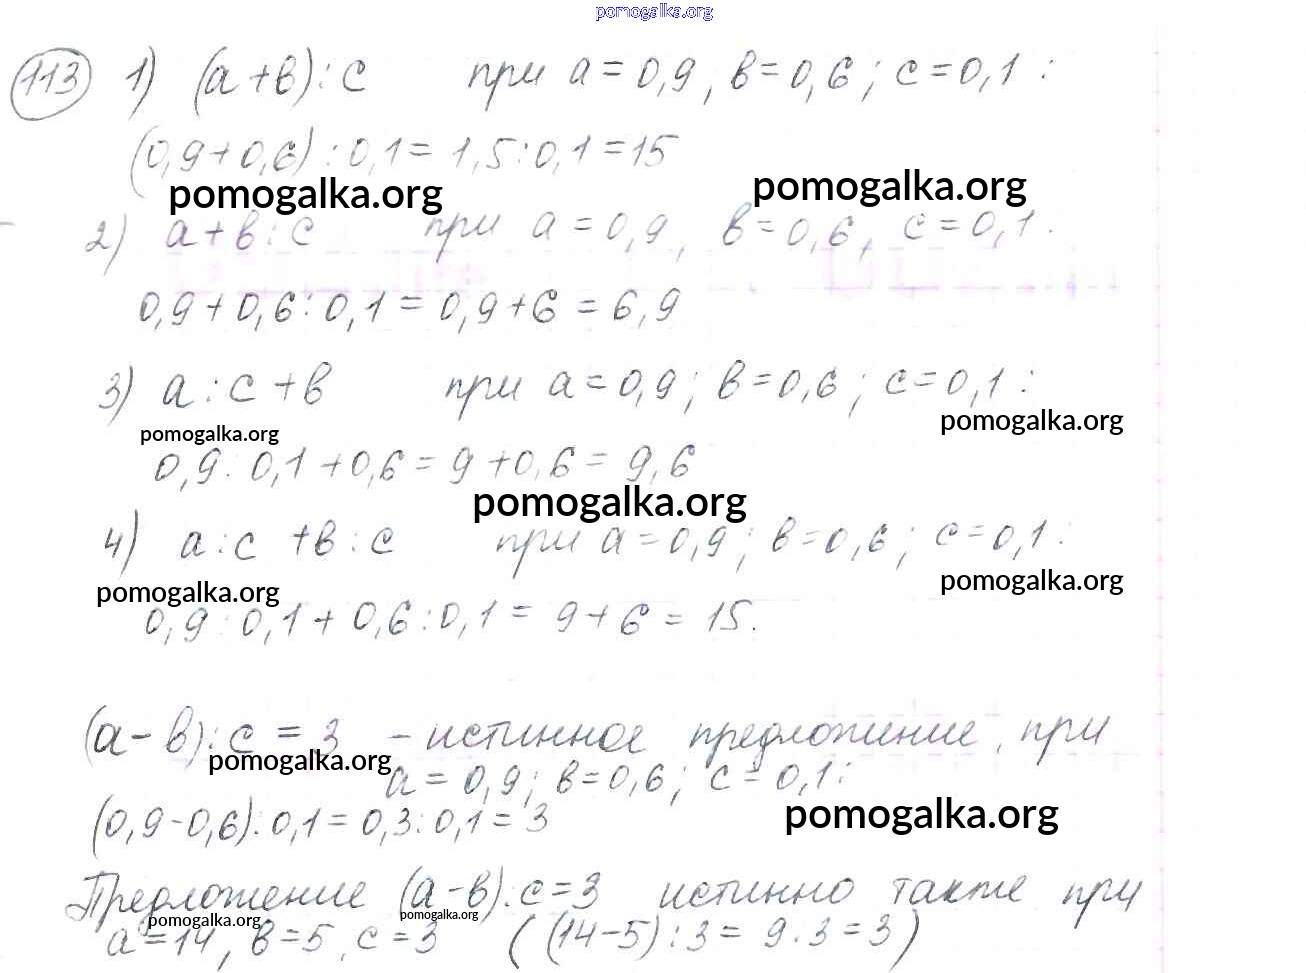 pomogalka.org
113 1) (а+в):с при а=0,9, в=0,6; с=0,1:
(0,9+0,6):0,1=1,5:0,1=15
pomogalka.org pomogalka.org
2) а+в:с при а=0,9, в=0,6, с=0,1:
0,9+0,6:0,1=0,9+6=6,9
3) а:с+в при а=0,9; в=0,6; с=0,1:
pomogalka.org pomogalka.org
0,9:0,1+0,6=9+0,6=9,6
pomogalka.org
4) а:с +в:с при а=0,9; в=0,6; с=0,1:
pomogalka.org pomogalka.org
0,9:0,1+0,6:0,1=9+6=15.
(а-в):с=3 -истинное предложение, при
pomogalka.org
а=0,9; в=0,6; с=0,1:
(0,9-0,6):0,1=0,3:0,1=3
pomogalka.org
Предложение (а-в):с=3 истинно также при
pomogalka.org pomogalka.org
а=14, в=5, с=3 ((14-5):3=9:3=3)